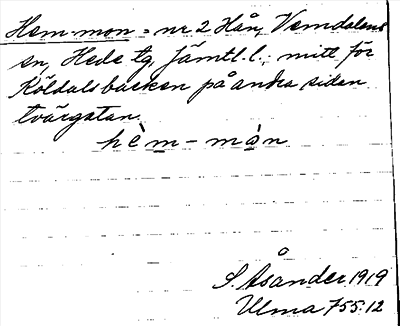 Hem-mon = nr 2 Hån, Vemdalens
sn, Hede tg, Jämtl. l.; mitt för
Köldalsbacken på andra sidan
tvärgatan.
hèm-màn
S. Åsander 1919
Ulma 755:12